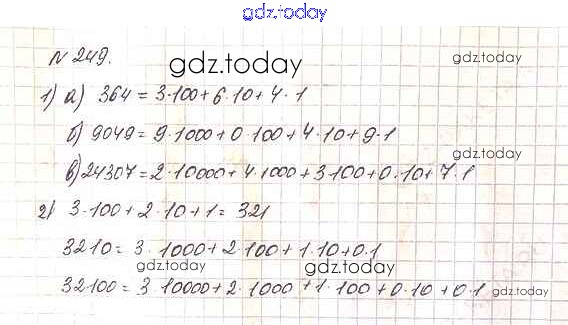 gdz.today
N 249.
gdz.today
gdz.today
1) а) 364 = 3·100+6·10+4·1
б) 9049 = 9·1000+0·100+4·10+9·1
gdz.today
в) 24307 = 2·10000+4·1000+3·100+0·10+7·1
2) 3·100+2·10+1 = 321
3210 = 3·1000+2·100+1·10+0·1
gdz.today
gdz.today
32100 = 3·10000+2·1000+1·100+0·10+0·1
gdz.today